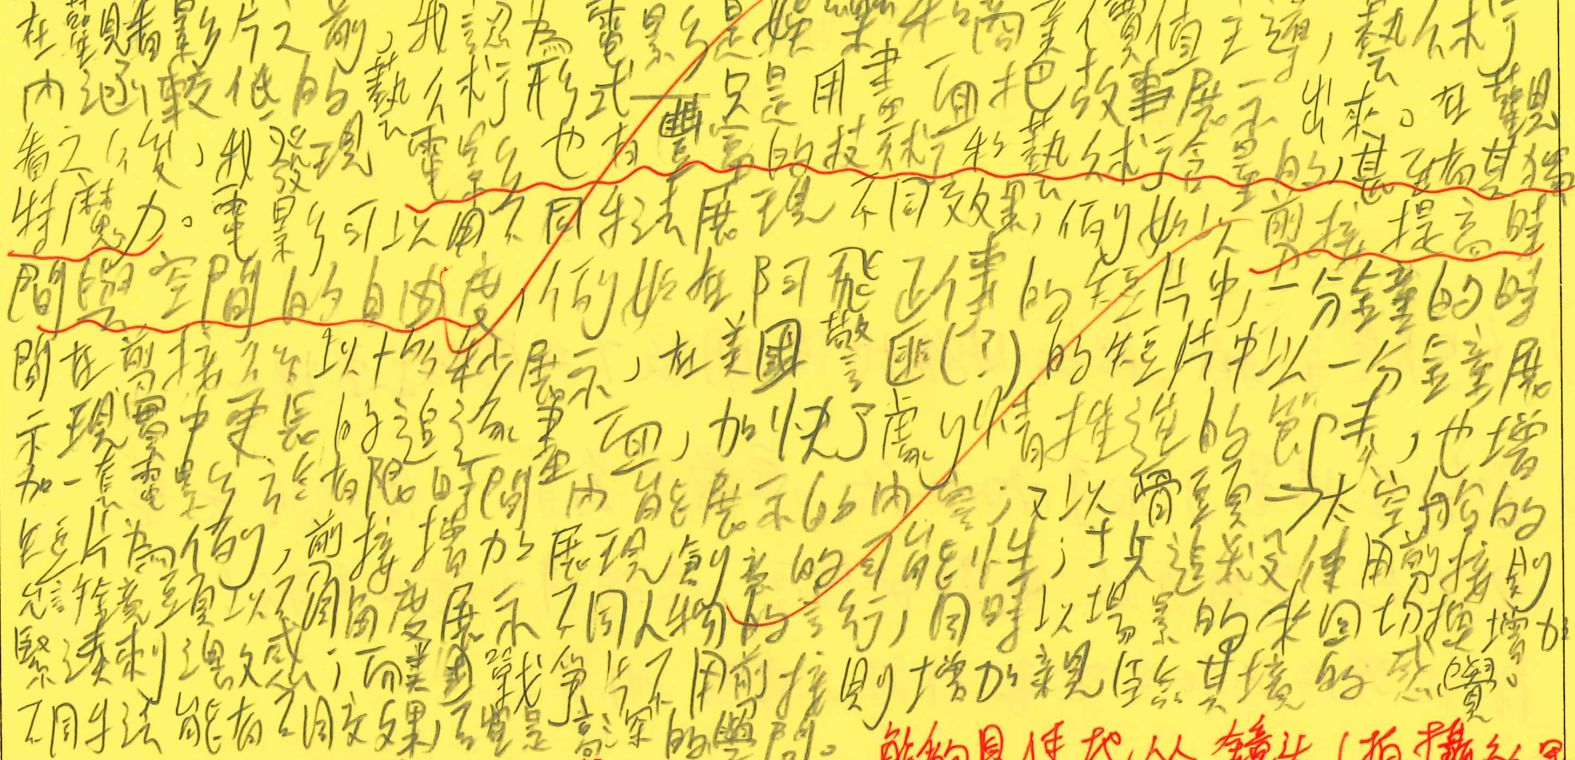 在觀看影片之前，我認為電影是娛樂和商業價值主導，藝術
內涵較低的藝術形式——只是用畫面把故事展示出來。在觀
看之後，我發現電影也有豐富的技術和藝術含量的，甚至有其獨
特魔力。電影可以用不同手法展現不同效果，例如以剪接提高時
間與空間的自由度，例如在阿飛正傳的短片中，一分鐘的時
間在剪接後以十多秒展示，在美國警匪(?)的短片中以一分鐘展
示現實中更長的追逐畫面，加快了劇情推進的節奏，也增
加一套電影於有限時間內能展示的內容；又以骨頭→太空船的
短片為例，剪接增加展現創意的可能性；士兵追殺使用剪接則
允許鏡頭以不同角度展示不同人物的言行，同時以場景的來回切換增加
緊湊刺激感；而美國戰爭片不用剪接則增加親臨其境的感覺。
不同手法能有不同效果，不是高深的學問。
能夠具體地從鏡頭、拍攝